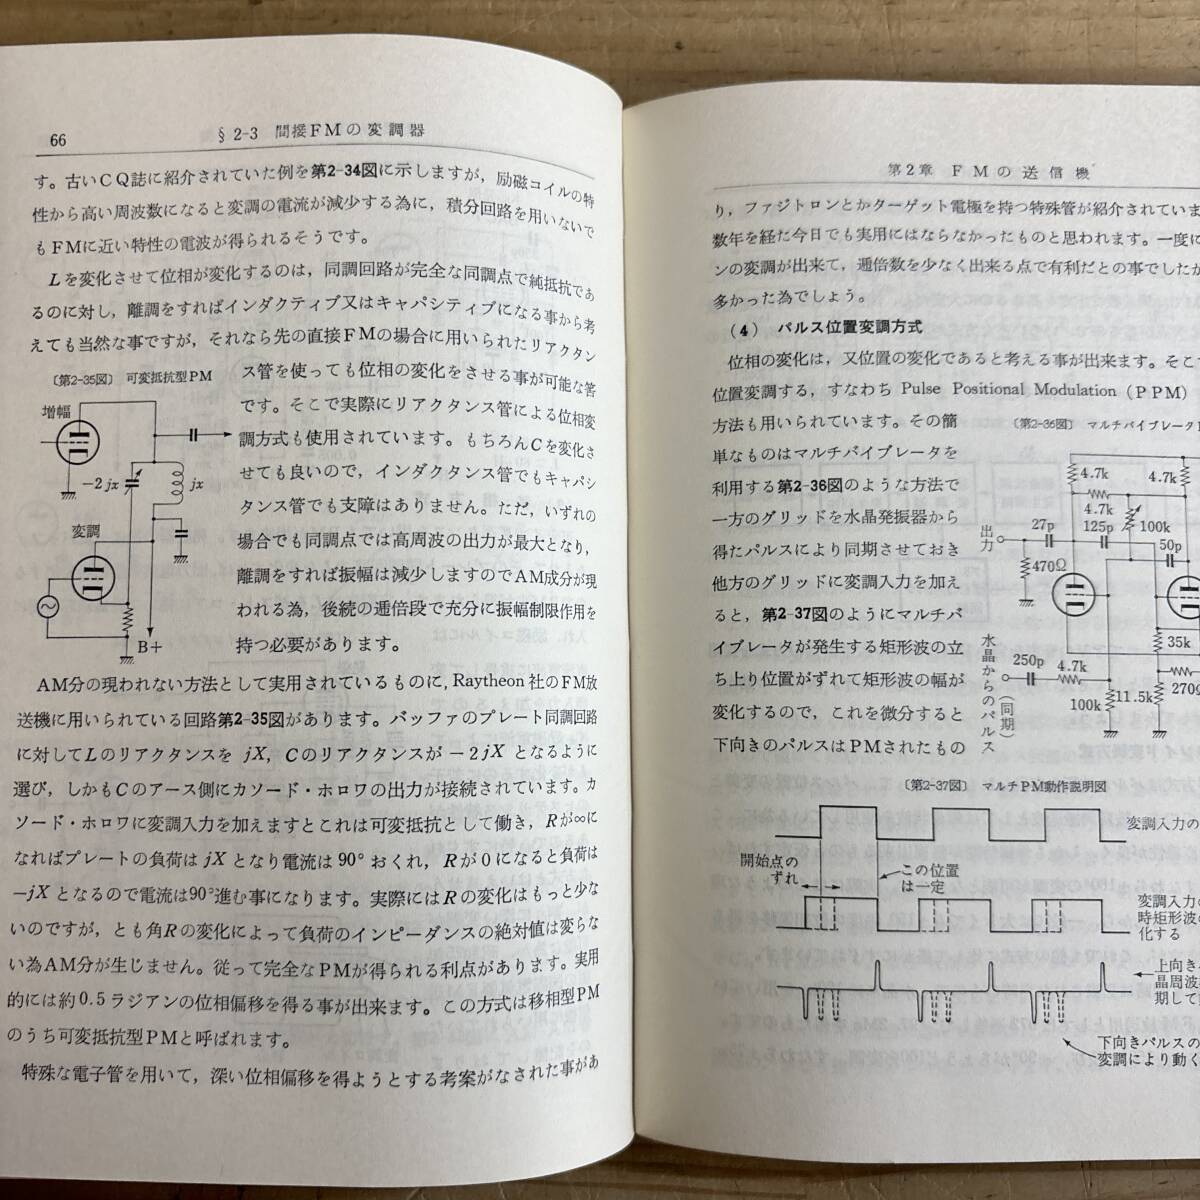 66
§2-3 間接FMの変調器
す。古いCQ誌に紹介されていた例を第2-34図に示しますが,励磁コイルの特
性から高い周波数になると変調の電流が減少する為に,積分回路を用いないで
もFMに近い特性の電波が得られるそうです。
Lを変化させて位相が変化するのは,同調回路が完全な同調点で純抵抗であ
るのに対し,離調をすればインダクティブ又はキャパシティブになる事から考
えても当然な事ですが,それなら先の直接FMの場合に用いられたリアクタン
〔第2-35図〕 可変抵抗型PM
増幅
-2jx
jx
変調
B+
ス管を使っても位相の変化をさせる事が可能な答
です。そこで実際にリアクタンス管による位相変
調方式も使用されています。もちろんCを変化さ
せても良いので,インダクタンス管でもキャパシ
タンス管でも支障はありません。ただ,いずれの
場合でも同調点では高周波の出力が最大となり,
離調をすれば振幅は減少しますのでAM成分が現
われる為,後続の逓倍段で充分に振幅制限作用を
持つ必要があります。
AM分の現われない方法として実用されているものに,Raytheon社のFM放
送機に用いられている回路第2-35図があります。バッファのプレート同調回路
に対してLのリアクタンスを jX,Cのリアクタンスが -2jX となるように
選び,しかもCのアース側にカソード・ホロワの出力が接続されています。カ
ソード・ホロワに変調入力を加えますとこれは可変抵抗として働き,Rが∞に
なればプレートの負荷は jX となり電流は 90° おくれ,Rが0になると負荷は
-jX となるので電流は90°進む事になります。実際にはRの変化はもっと少な
いのですが,とも角Rの変化によって負荷のインピーダンスの絶対値は変らな
い為AM分が生じません。従って完全なPMが得られる利点があります。実用
的には約0.5ラジアンの位相偏移を得る事が出来ます。この方式は移相型PM
のうち可変抵抗型PMと呼ばれます。
特殊な電子管を用いて,深い位相偏移を得ようとする考案がなされた事があ
第2章 FMの送信機
り,ファジトロンとかターゲット電極を持つ特殊管が紹介されていま
数年を経た今日でも実用にはならなかったものと思われます。一度に
ンの変調が出来て,逓倍数を少なく出来る点で有利だとの事でしたが
多かった為でしょう。
(4) パルス位置変調方式
位相の変化は,又位置の変化であると考える事が出来ます。そこで
位置変調する,すなわち Pulse Positional Modulation (PPM)
方法も用いられています。その簡
単なものはマルチバイブレータを
利用する第2-36図のような方法で
一方のグリッドを水晶発振器から
得たパルスにより同期させておき
他方のグリッドに変調入力を加え
ると,第2-37図のようにマルチバ
イブレータが発生する矩形波の立
ち上り位置がずれて矩形波の幅が
変化するので,これを微分すると
下向きのパルスはPMされたもの
〔第2-36図〕 マルチバイブレータ
4.7k
4.7k
4.7k
100k
出力
27p
125p
50p
470Ω
35k
水晶からのパルス(同期)
250p
4.7k
100k
11.5k
270Ω
〔第2-37図〕 マルチPM動作説明図
変調入力の
開始点の
ずれ
この位置
は一定
変調入力の
時矩形波の
化する
上向き
晶周波
期して
下向きパルスの
変調により動く